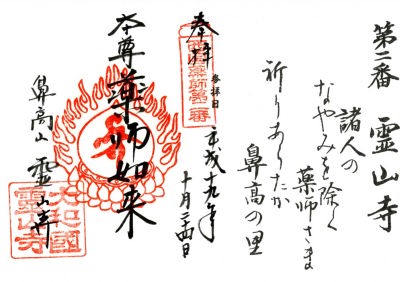 第二番 霊山寺
諸人の
なやみを除く
薬師さま
祈りあらたか
鼻高の里
奉拝
参拝日
平成十九年
十月二十四日
西国薬師第二番
本尊薬師如来
鼻高山 霊山寺
大和國
霊山寺